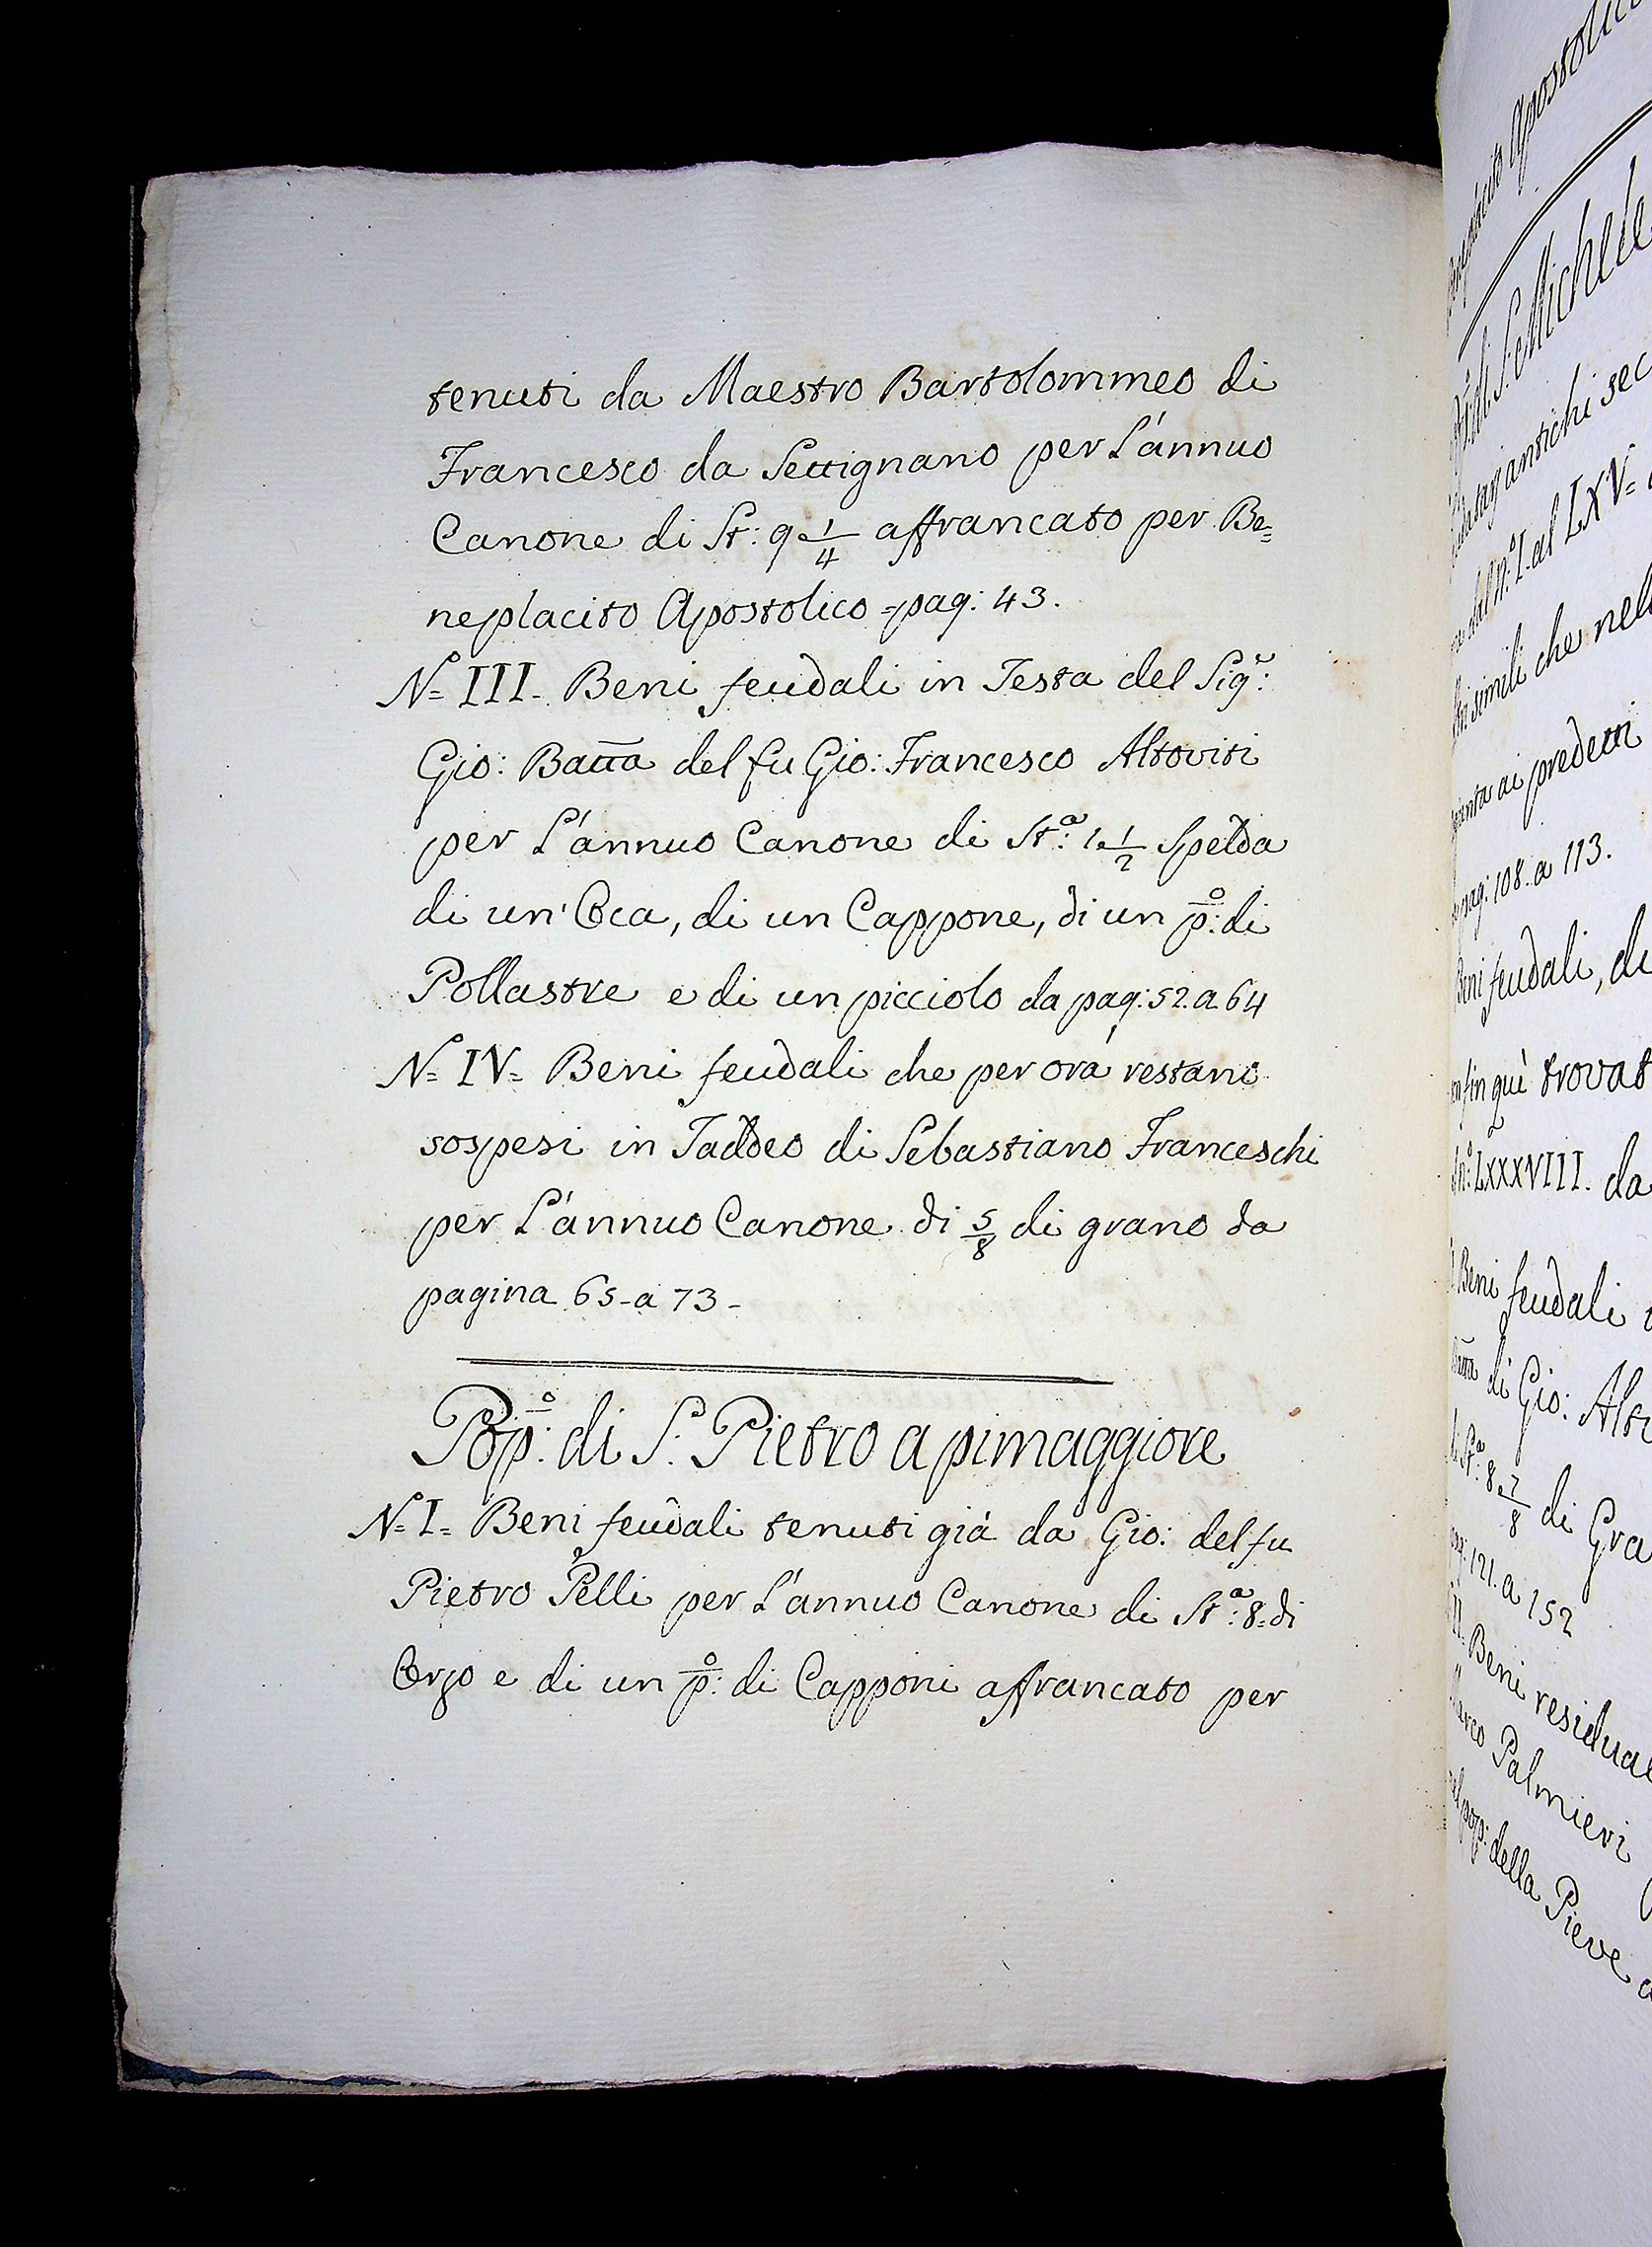 tenuti da Maestro Bartolommeo di
Francesco da Settignano per L'annuo
Canone di St: 9 1/4 affrancato per Be=
neplacito Apostolico = pag: 43.
N.º III. Beni feudali in Testa del Sig.r:
Gio: Batta del fu Gio: Francesco Altoviti
per L'annuo Canone di St.a: 1 1/2 Spelda
di un' Oca, di un Cappone, di un p.º: di
Pollastre e di un picciolo da pag: 52. a. 64
N.º IV= Beni feudali che per ora restano
sospesi in Taddeo di Sebastiano Franceschi
per L'annuo Canone di 5/8 di grano da
pagina 65-a 73-
Pop.º: di S: Pietro a pimaggiore
N.º I= Beni feudali tenuti già da Gio: del fu
Pietro Pelli per L'annuo Canone di St.a: 8= di
Orzo e di un p.º: di Capponi affrancato per
Apostolico
di S: Michele
antichi
dal n.º: I. al LXV=
simili che nell
ai predetti
pag: 108. a 113.
Beni feudali, di
fin qui trovat
n.º: LXXXVIII. da
Beni feudali
di Gio: Alto
di St.a: 8 7/8 di Gra
pag: 121. a 152
II= Beni residua
Marco Palmieri
pop: della Pieve a